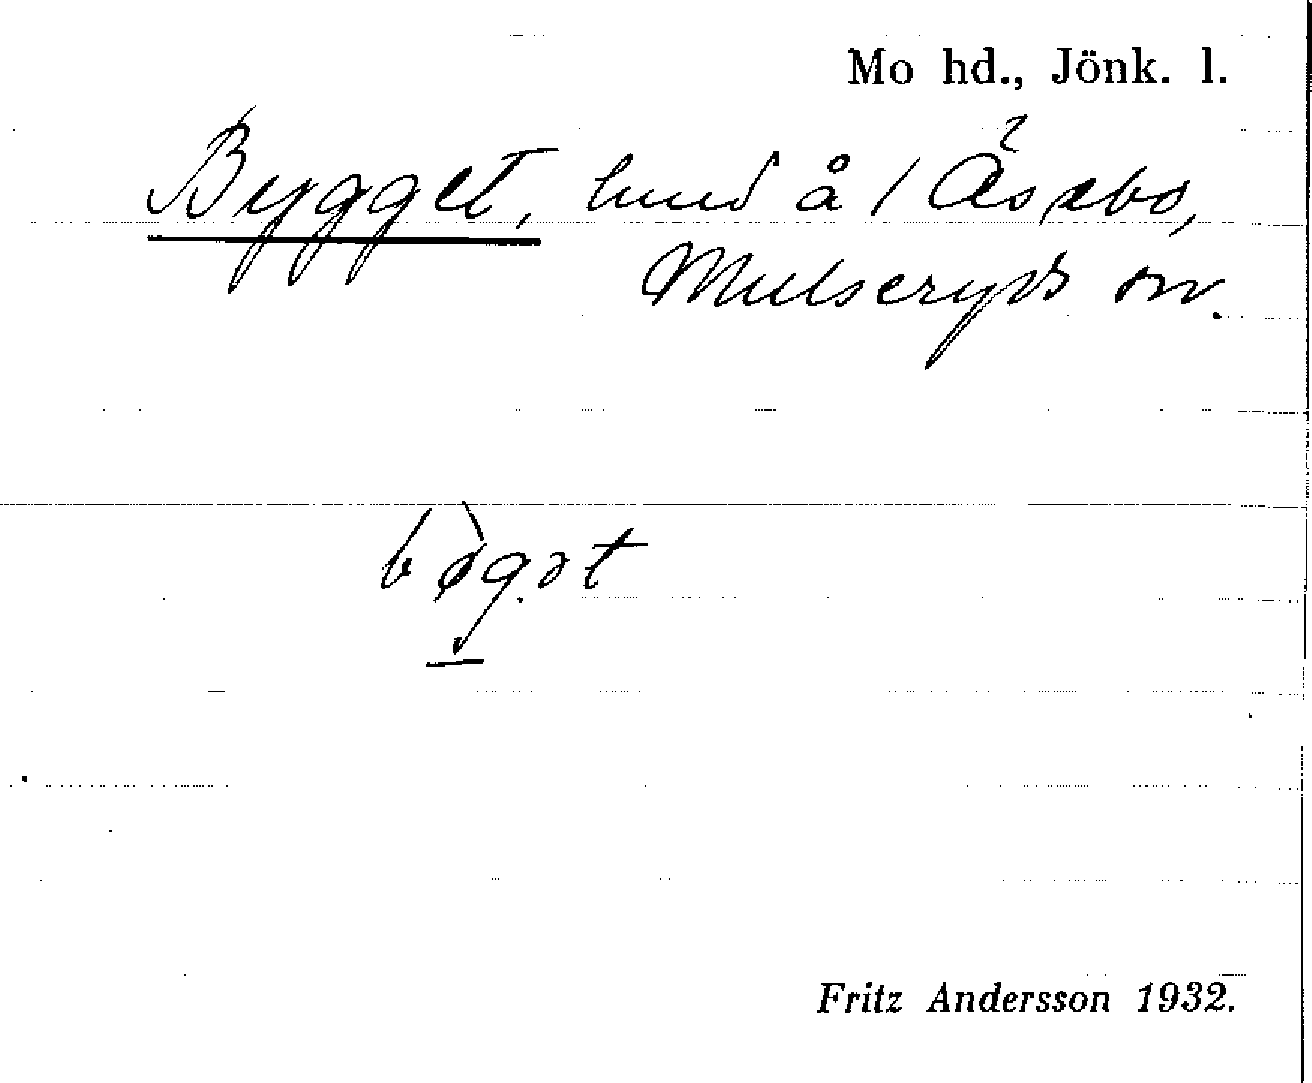 Mo hd., Jönk. l.
Bygget, lund å / Åsebo,
Mulseryds sn.
bø̀gət
Fritz Andersson 1932.